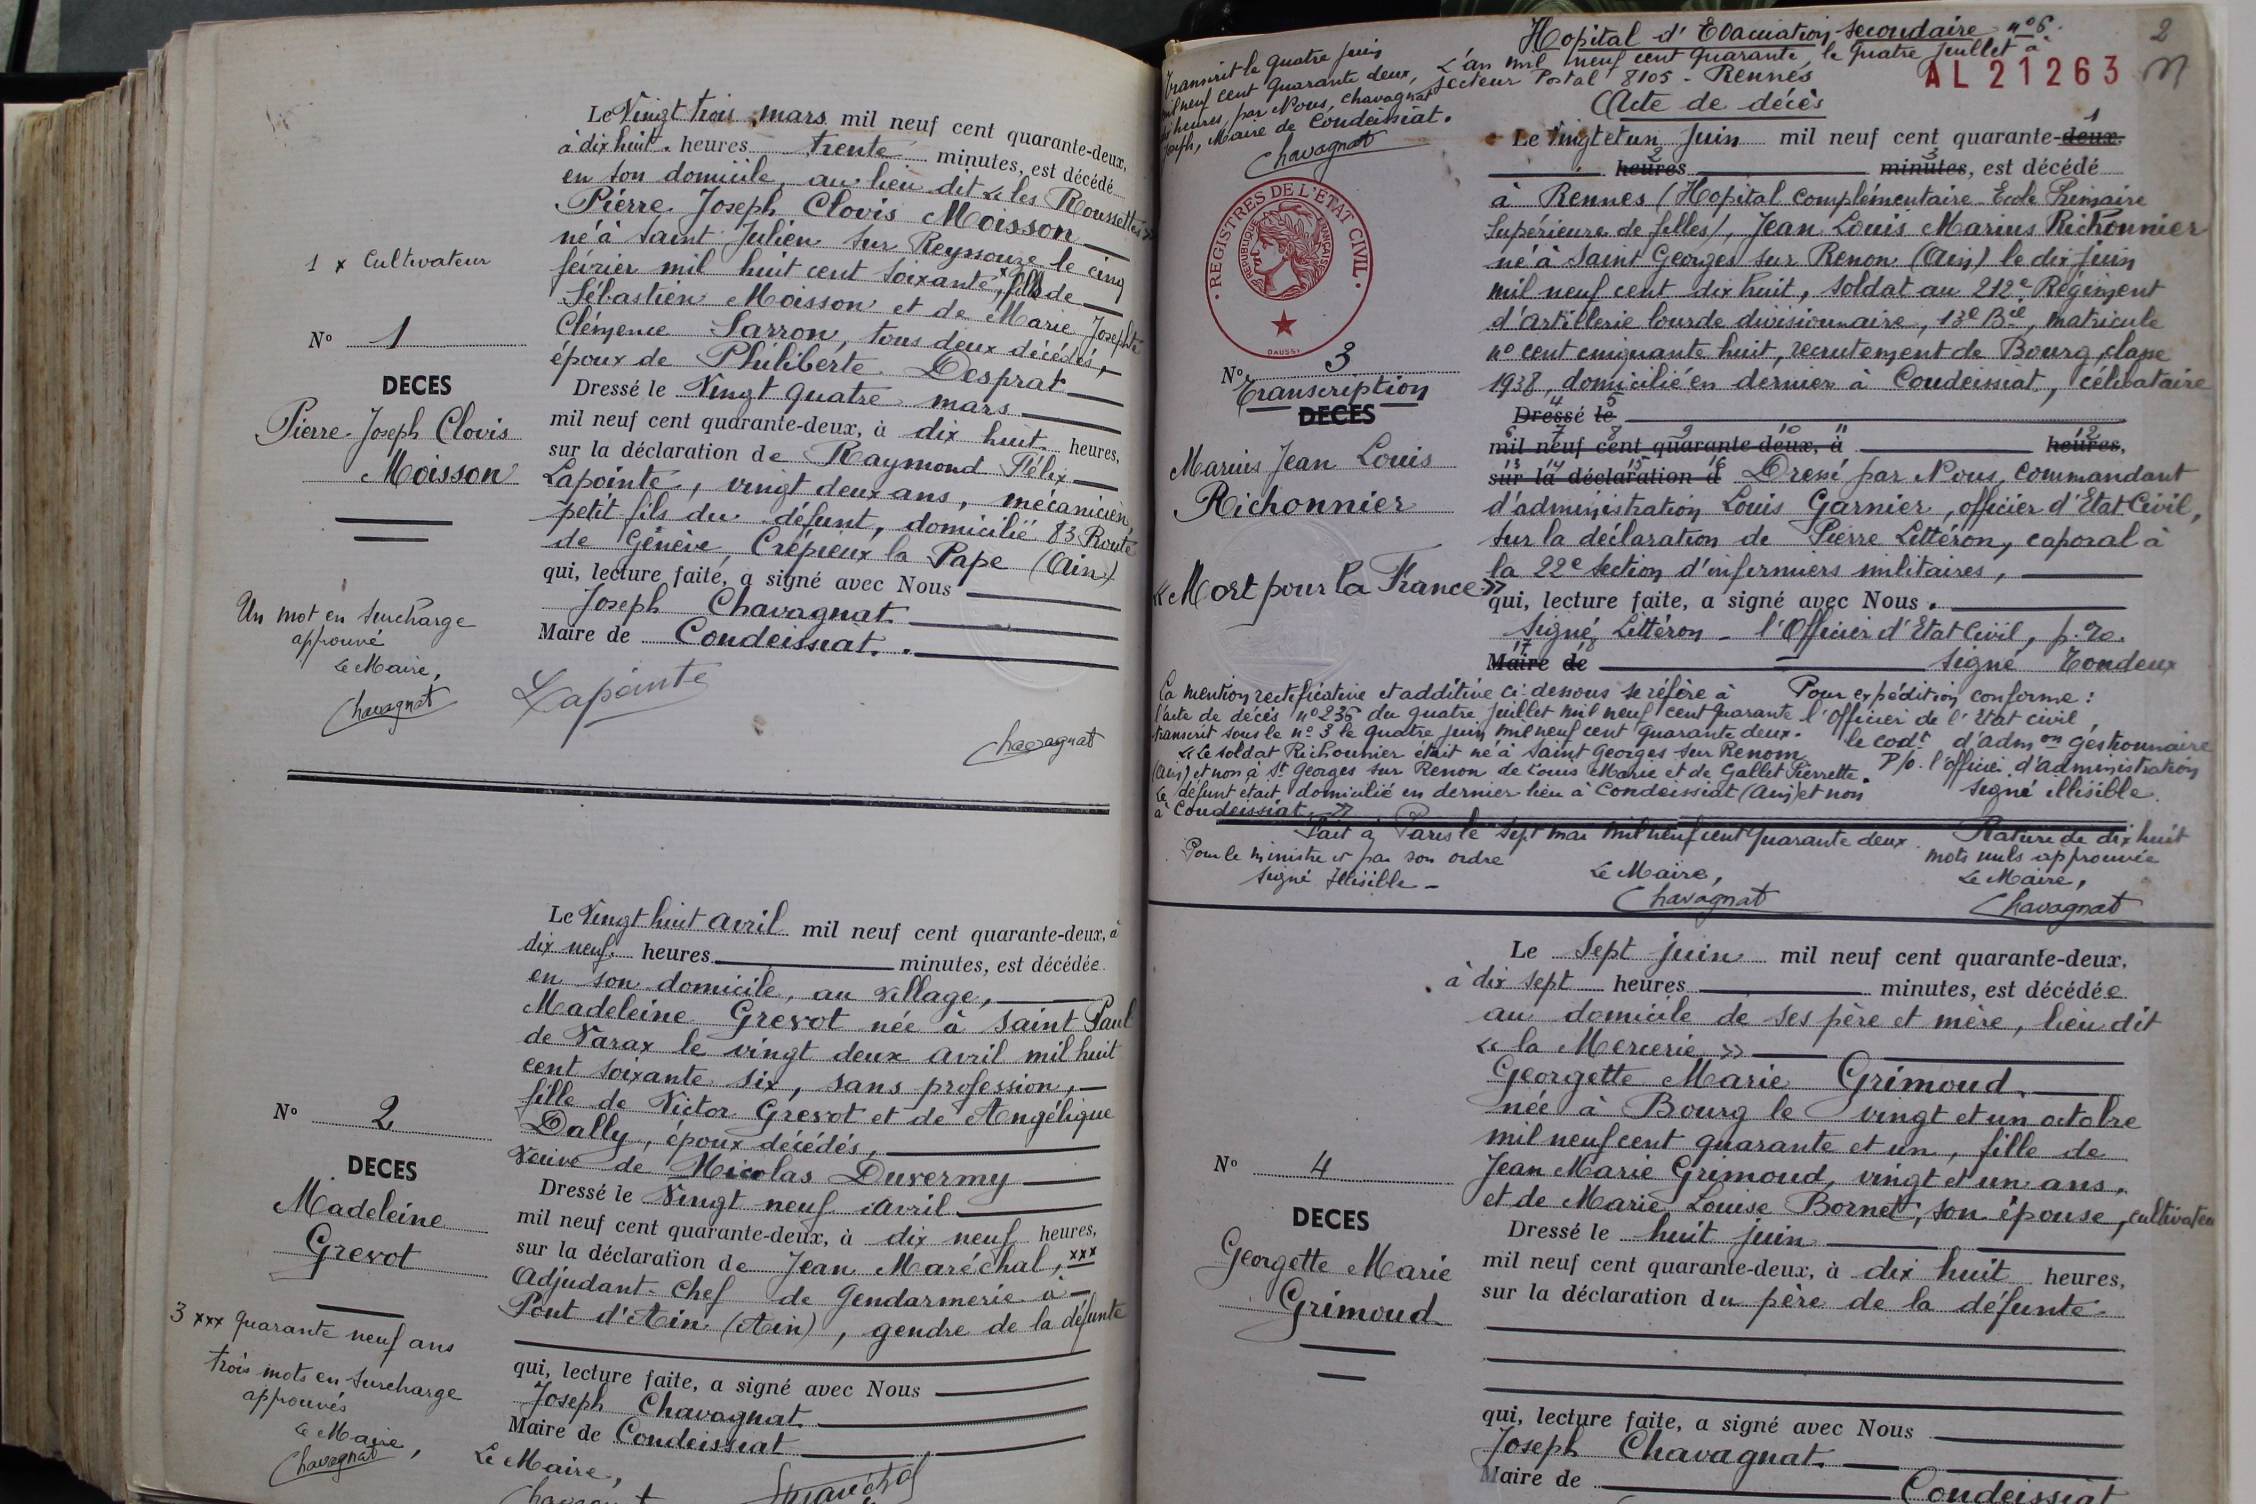 Le Vingt trois mars mil neuf cent quarante-deux,
à dix huit heures trente minutes, est décédé
en son domicile, au lieu dit « les Roussettes »
Pierre Joseph Clovis Moisson
né à Saint Julien sur Reyssouze le cinq
février mil huit cent soixante, x fils de
Sébastien Moisson et de Marie Josephte
Clémence Sarron, tous deux décédés,
époux de Philiberte Desprat
Dressé le Vingt quatre mars
mil neuf cent quarante-deux, à dix huit heures,
sur la déclaration de Raymond Félix
Lapointe, vingt deux ans, mécanicien,
petit fils du défunt, domicilié 83 Route
de Genève, Crépieux la Pape (Ain)
qui, lecture faite, a signé avec Nous
Joseph Chavagnat
Maire de Condeissiat.
1 x Cultivateur
N° 1
DECES
Pierre Joseph Clovis
Moisson
Un mot en surcharge
approuvé
Le Maire,
Chavagnat
Lapointe
Chavagnat
Le Vingt huit avril mil neuf cent quarante-deux, à
dix neuf heures minutes, est décédée
en son domicile, au village,
Madeleine Grevot née à Saint Paul
de Varax le vingt deux avril mil huit
cent soixante six, sans profession,
fille de Victor Grevot et de Angélique
Dally, époux décédés,
veuve de Nicolas Duvermy
Dressé le Vingt neuf avril
mil neuf cent quarante-deux, à dix neuf heures,
sur la déclaration de Jean Maréchal, xxx
Adjudant-Chef de Gendarmerie à
Pont d'Ain (Ain), gendre de la défunte
qui, lecture faite, a signé avec Nous
Joseph Chavagnat
Maire de Condeissiat
N° 2
DECES
Madeleine
Grevot
3 xxx quarante neuf ans
trois mots en surcharge
approuvés
Le Maire,
Chavagnat
Le Maire,
Chavagnat
Maréchal
Hopital d'Evacuation secondaire n° 6.
L'an mil neuf cent quarante, le quatre Juillet à
Secteur Postal 8105 - Rennes
AL 21263
2
Acte de décès
Transcrit le quatre juin
mil neuf cent quarante deux,
heures, par Nous, Chavagnat
Joseph, Maire de Condeissiat.
Chavagnat
REGISTRES DE L'ETAT CIVIL
REPUBLIQUE FRANCAISE
N° 3
Transcription
DECES
Marius Jean Louis
Richonnier
« Mort pour la France »
Le Vingt et un Juin mil neuf cent quarante-deux. 1
heures 2 minutes 3, est décédé
à Rennes (Hopital complémentaire Ecole Primaire
Supérieure de filles), Jean Louis Marius Richonnier
né à Saint Georges sur Renon (Ain) le dix juin
mil neuf cent dix huit, soldat au 212e Régiment
d'Artillerie lourde divisionnaire, 13e Bie, matricule
n° cent cinquante huit, recrutement de Bourg, classe
1938, domicilié en dernier à Coudeissiat, célibataire
Dressé le 4 5
mil neuf cent quarante-deux, à heures, 6 7 8 9 10 11 12
sur la déclaration d 13 14 15 16 Dressé par Nous, commandant
d'administration Louis Garnier, officier d'Etat Civil,
sur la déclaration de Pierre Littéron, caporal à
la 22e Section d'infirmiers militaires,
qui, lecture faite, a signé avec Nous.
Signé, Littéron - l'Officier d'Etat Civil, p.o.
17 18 Maire de signé Tondeux
La mention rectificative et additive ci-dessous se réfère à
l'acte de décès n° 236 du quatre Juillet mil neuf cent quarante
transcrit sous le n° 3 le quatre juin mil neuf cent quarante deux.
« Le soldat Richonnier était né à Saint Georges sur Renom
(Ain) et non à St Georges sur Renon de Louis Marie et de Gallet Pierrette.
Le défunt était domicilié en dernier lieu à Condeissiat (Ain) et non
à Coudeissiat »
Pour expédition conforme :
l'Officier de l'Etat civil,
le Codt d'admon gestionnaire
P/o. l'officier d'administration
Signé illisible.
Fait à Paris le sept mai mil neuf cent quarante deux.
Pour le ministre et par son ordre
signé Illisible -
Le Maire,
Chavagnat
Rature de dix huit
mots nuls approuvée
Le Maire,
Chavagnat
Le Sept juin mil neuf cent quarante-deux,
à dix sept heures minutes, est décédée
au domicile de ses père et mère, lieu dit
« la Mercerie »
Georgette Marie Grimoud
née à Bourg le vingt et un octobre
mil neuf cent quarante et un, fille de
Jean Marie Grimoud, vingt et un ans,
et de Marie Louise Bornet, son épouse, cultivateur
Dressé le huit juin
mil neuf cent quarante-deux, à dix huit heures,
sur la déclaration du père de la défunte
qui, lecture faite, a signé avec Nous
Joseph Chavagnat
Maire de Condeissiat
N° 4
DECES
Georgette Marie
Grimoud